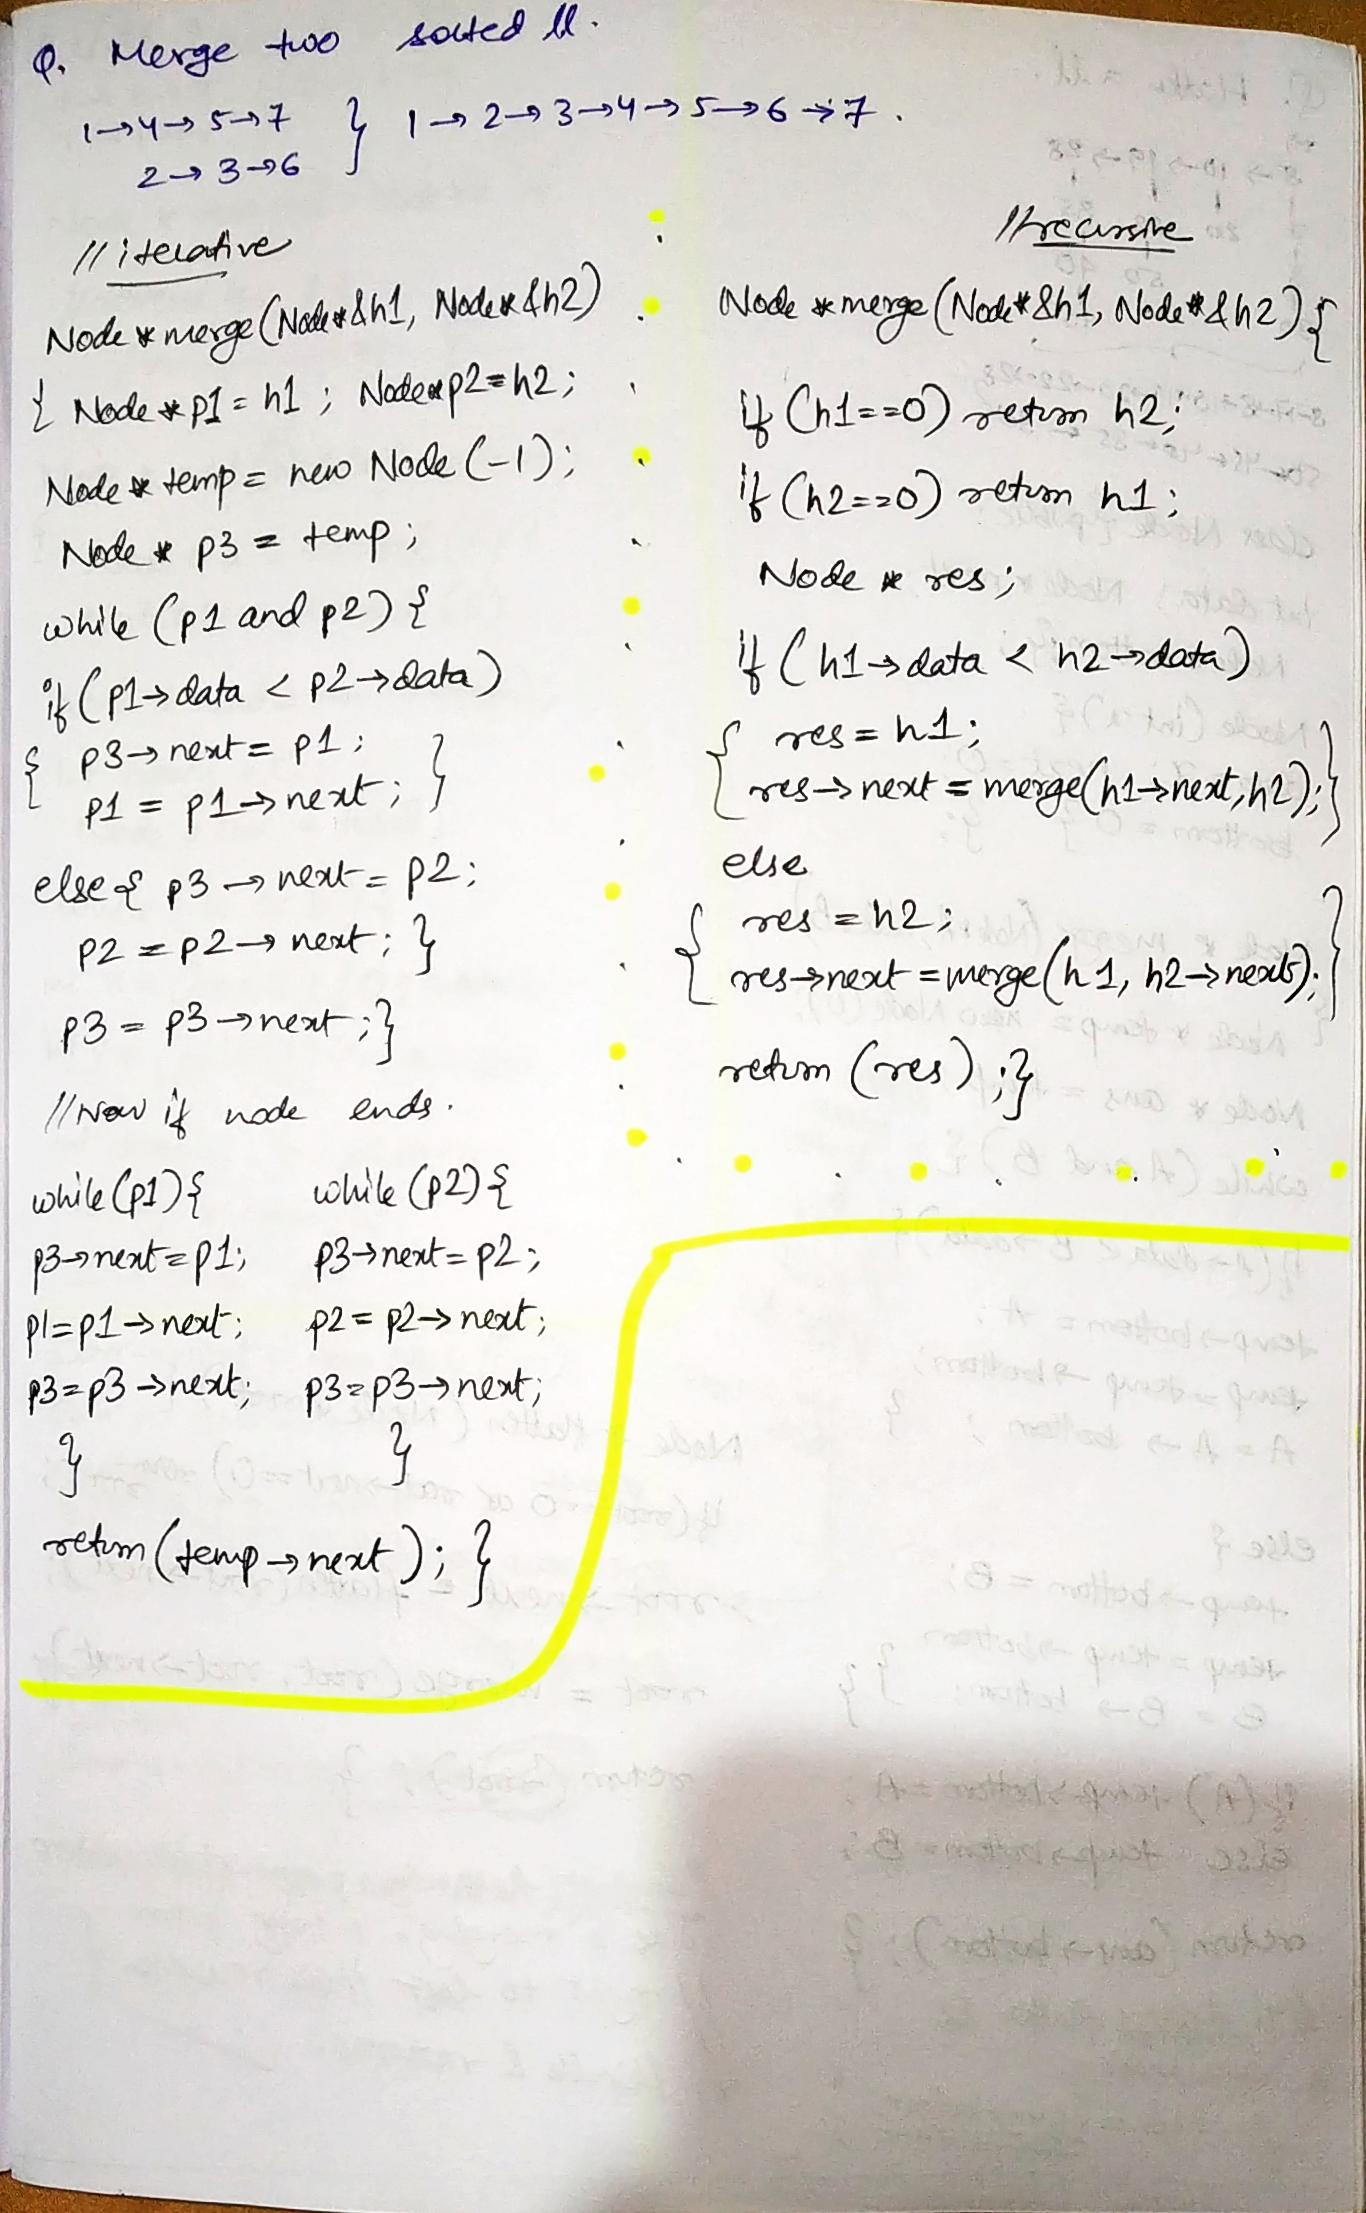 Q. Merge two sorted ll.
1→4→5→7 } 1→2→3→4→5→6→7.
2→3→6
//iterative
Node *merge(Node*&h1, Node*&h2)
{ Node *p1 = h1; Node*p2=h2;
Node * temp = new Node (-1);
Node * p3 = temp;
while (p1 and p2) {
if (p1→data < p2→data)
{ p3→next = p1;
p1 = p1→next; }
else { p3→next = p2;
p2 = p2→next; }
p3 = p3→next;}
//Now if node ends.
while(p1){ while(p2){
p3→next=p1; p3→next=p2;
p1=p1→next; p2=p2→next;
p3=p3→next; p3=p3→next;
} }
return(temp→next); }
//recursive
Node *merge(Node*&h1, Node*&h2){
if (h1==0) return h2;
if (h2==0) return h1;
Node * res;
if (h1→data < h2→data)
{ res = h1;
res→next = merge(h1→next,h2);}
else
{ res = h2;
res→next = merge(h1, h2→next);}
return (res);}